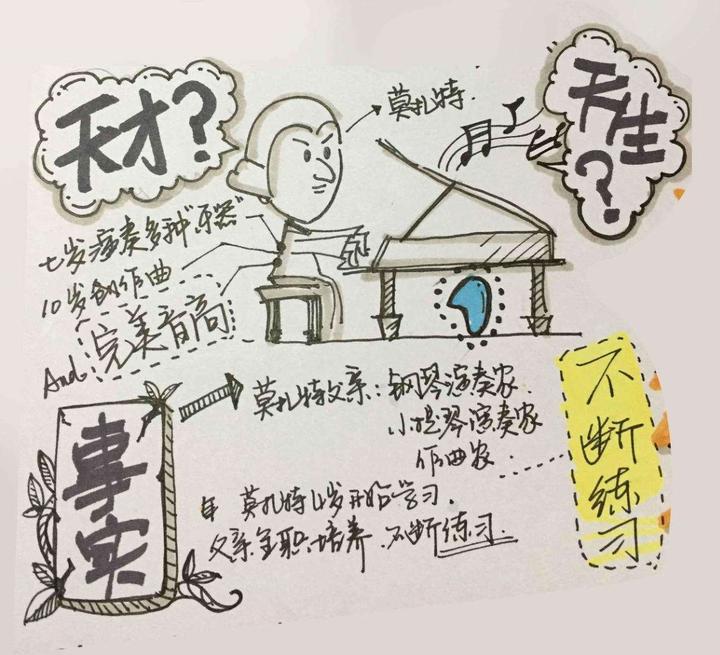 天才?
莫扎特.
天生?
七岁演奏多种"乐器"
10岁创作曲
And 完美音高
事实
莫扎特父亲: 钢琴演奏家.
小提琴演奏家
作曲家.
莫扎特4岁开始学习.
父亲全职培养 不断练习.
不断练习